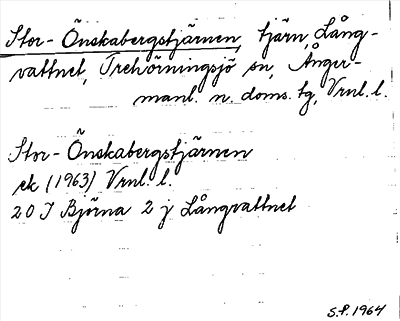 Stor-Önskabergstjärnen, tjärn, Lång-
vattnet, Trehörningsjö sn, Ånger-
manl. n. doms. tg, Vrnl. l.
Stor-Önskabergstjärnen
ek (1963) Vrnl. l.
20 J Björna 2 j Långvattnet
S.P. 1964